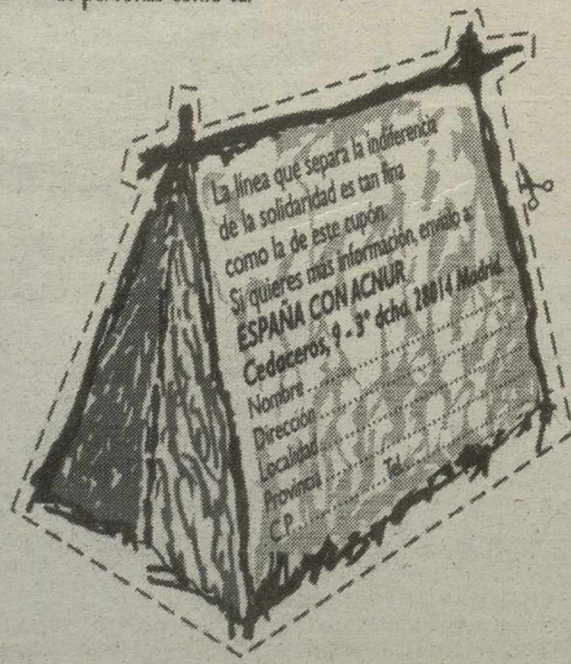 La línea que separa la indiferencia
de la solidaridad es tan fina
como la de este cupón.
Si quieres más información, envíalo a:
ESPAÑA CON ACNUR
Cedaceros, 9 - 3º dchd. 28014 Madrid.
Nombre
Dirección
Localidad
Provincia Tel.
C.P.